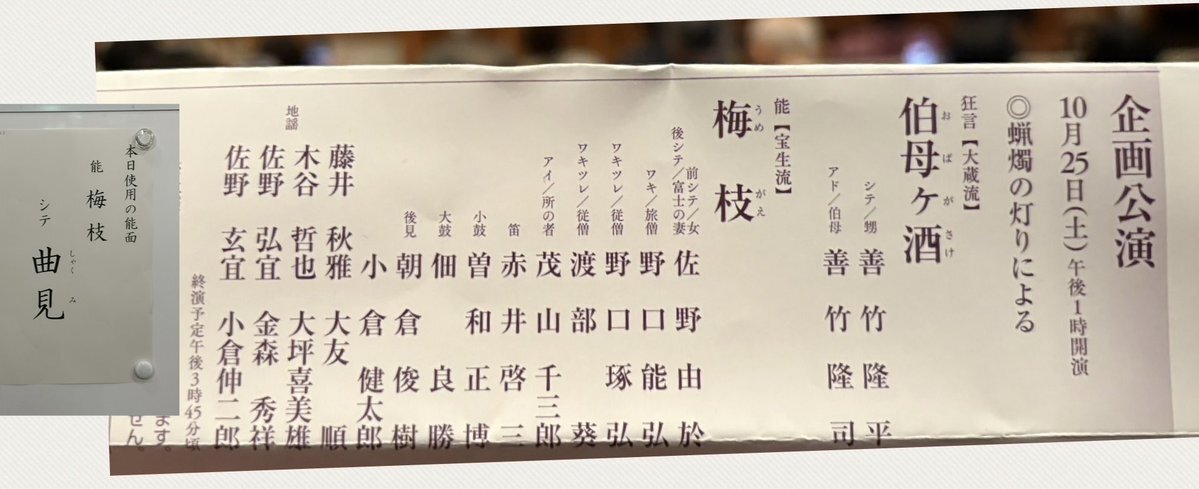 企画公演
10月25日(土)午後1時開演
◎蝋燭の灯りによる
狂言【大蔵流】
おばがさけ
伯母ヶ酒
シテ/甥 善竹隆平
アド/伯母 善竹隆司
能【宝生流】
うめがえ
梅枝
前シテ/女
後シテ/富士の妻 佐野由於
ワキ/旅僧 野口能弘
ワキツレ/従僧 野口琢弘
ワキツレ/従僧 渡部葵
アイ/所の者 茂山千三郎
笛 赤井啓三
小鼓 曽和正博
大鼓 佃良勝
後見 朝倉俊樹
小倉健太郎
地謡
藤井秋雅 大友順
木谷哲也 大坪喜美雄
佐野弘宜 金森秀祥
佐野玄宜 小倉伸二郎
終演予定午後3時45分頃
ます。
せん。
本日使用の能面
能 梅枝
しゃくみ
シテ 曲見